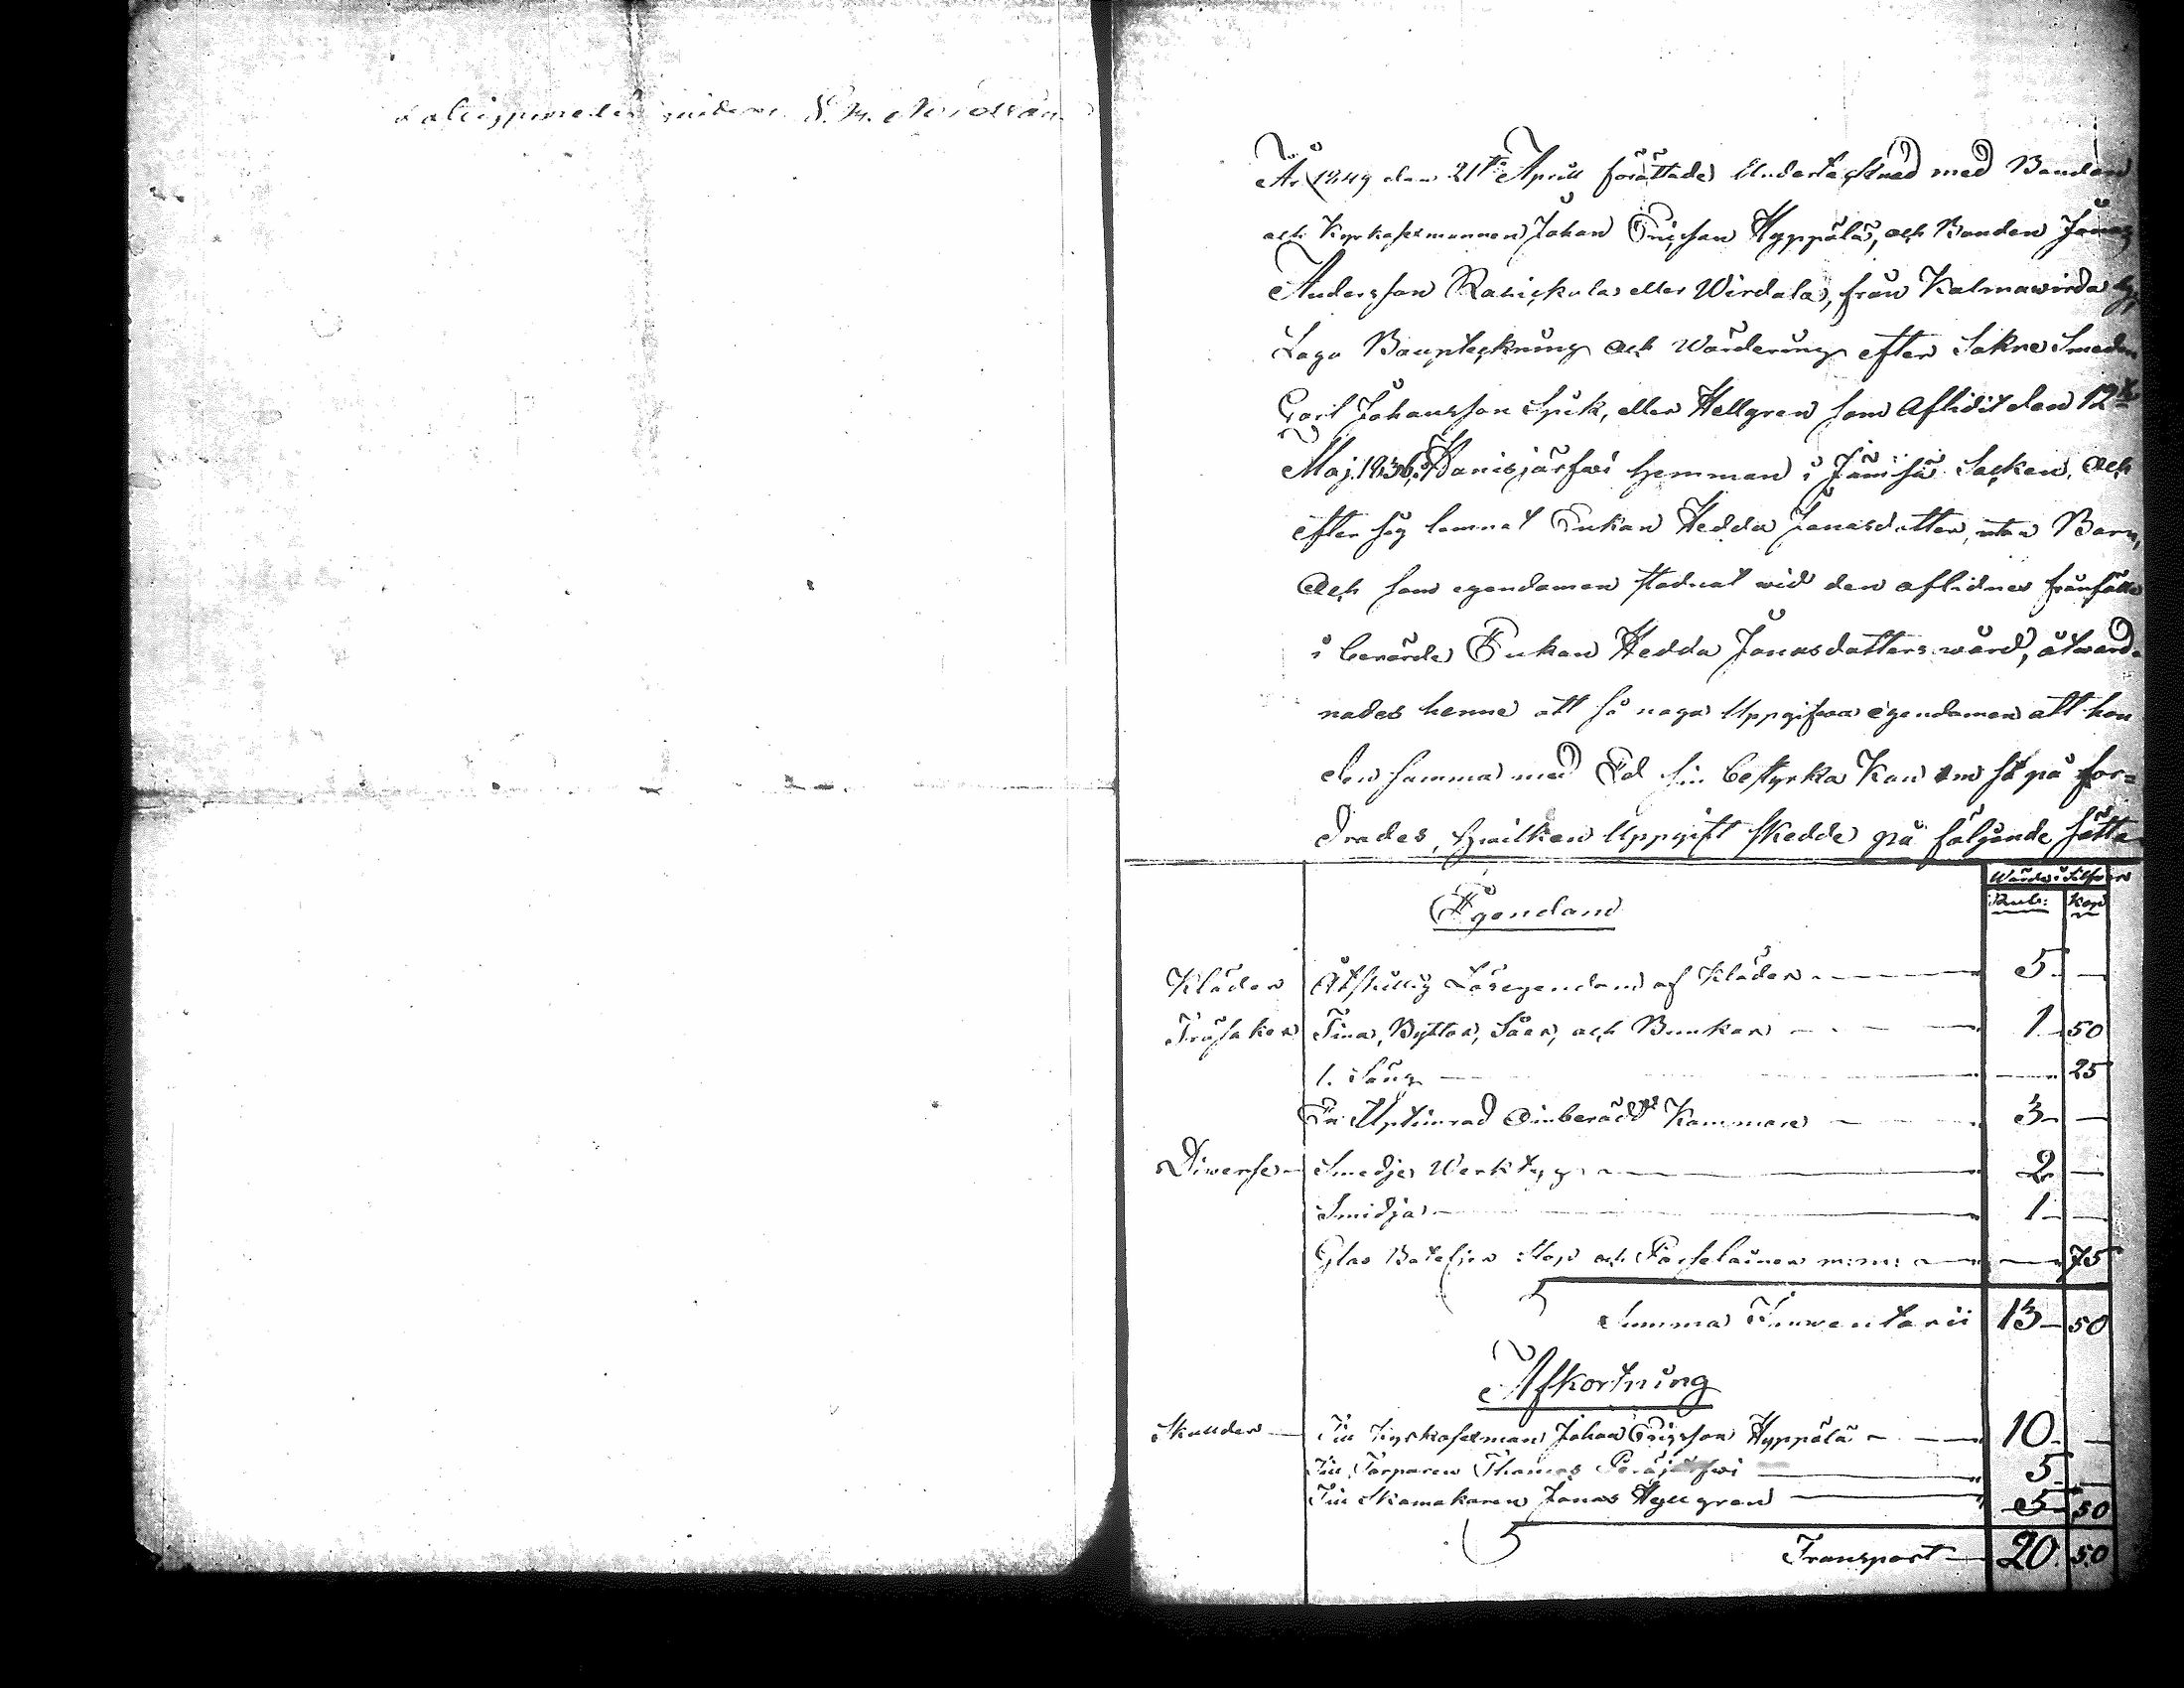 År 1849 den 21te Aprill förättade Undertecknad med Bonden
och Kyrkosexmannen Johan Ericsson Hyppälä, och Bonden Jonas
Andersson eller Wirdala, från Kalmawirda by,
Laga Boupteckning och Wärdering efter Sokne Smeden
Carl Johansson Spik, eller Hellgren som Aflidit den 12te
Maj 1836, hemman i Jämsä Socken, och
efter sig lemnat Enkan Hedda Jonasdotter, utan Barn,
Och som egendomen stadnat wid den aflidnes frånfälle
i berörde Enkan Hedda Jonasdotters wård, åtward-
nades henne att så noga Uppgifwa egendomen att hon
den samma med Ed sin bestyrka Kan om så på for=
drades, hwilken Uppgift skedde på följande sätt
Wärde i Silfwer
Egendom Rub: Kop
Kläder Åtskillig Lösegendom af Kläder 5 —
Träsaker Tina, Byttor, Såar, och Bunkar 1 50
1. Säng — 25
En Uptimrad Oinberädd Kammare 3 —
Diverse Smedje Werktyg 2 —
Smidja 1 —
Glas Boteljer Stop och Porselainer m:m: — 75
Summa Inwentarii 13 50
Afkortning
Skulder Till Kyrkosexman Johan Ericsson Hyppälä 10 —
Till Torparen Thomas Peräjärfwi 5 —
Till Skomakaren Jonas Hellgren 5 50
Transport 20 50